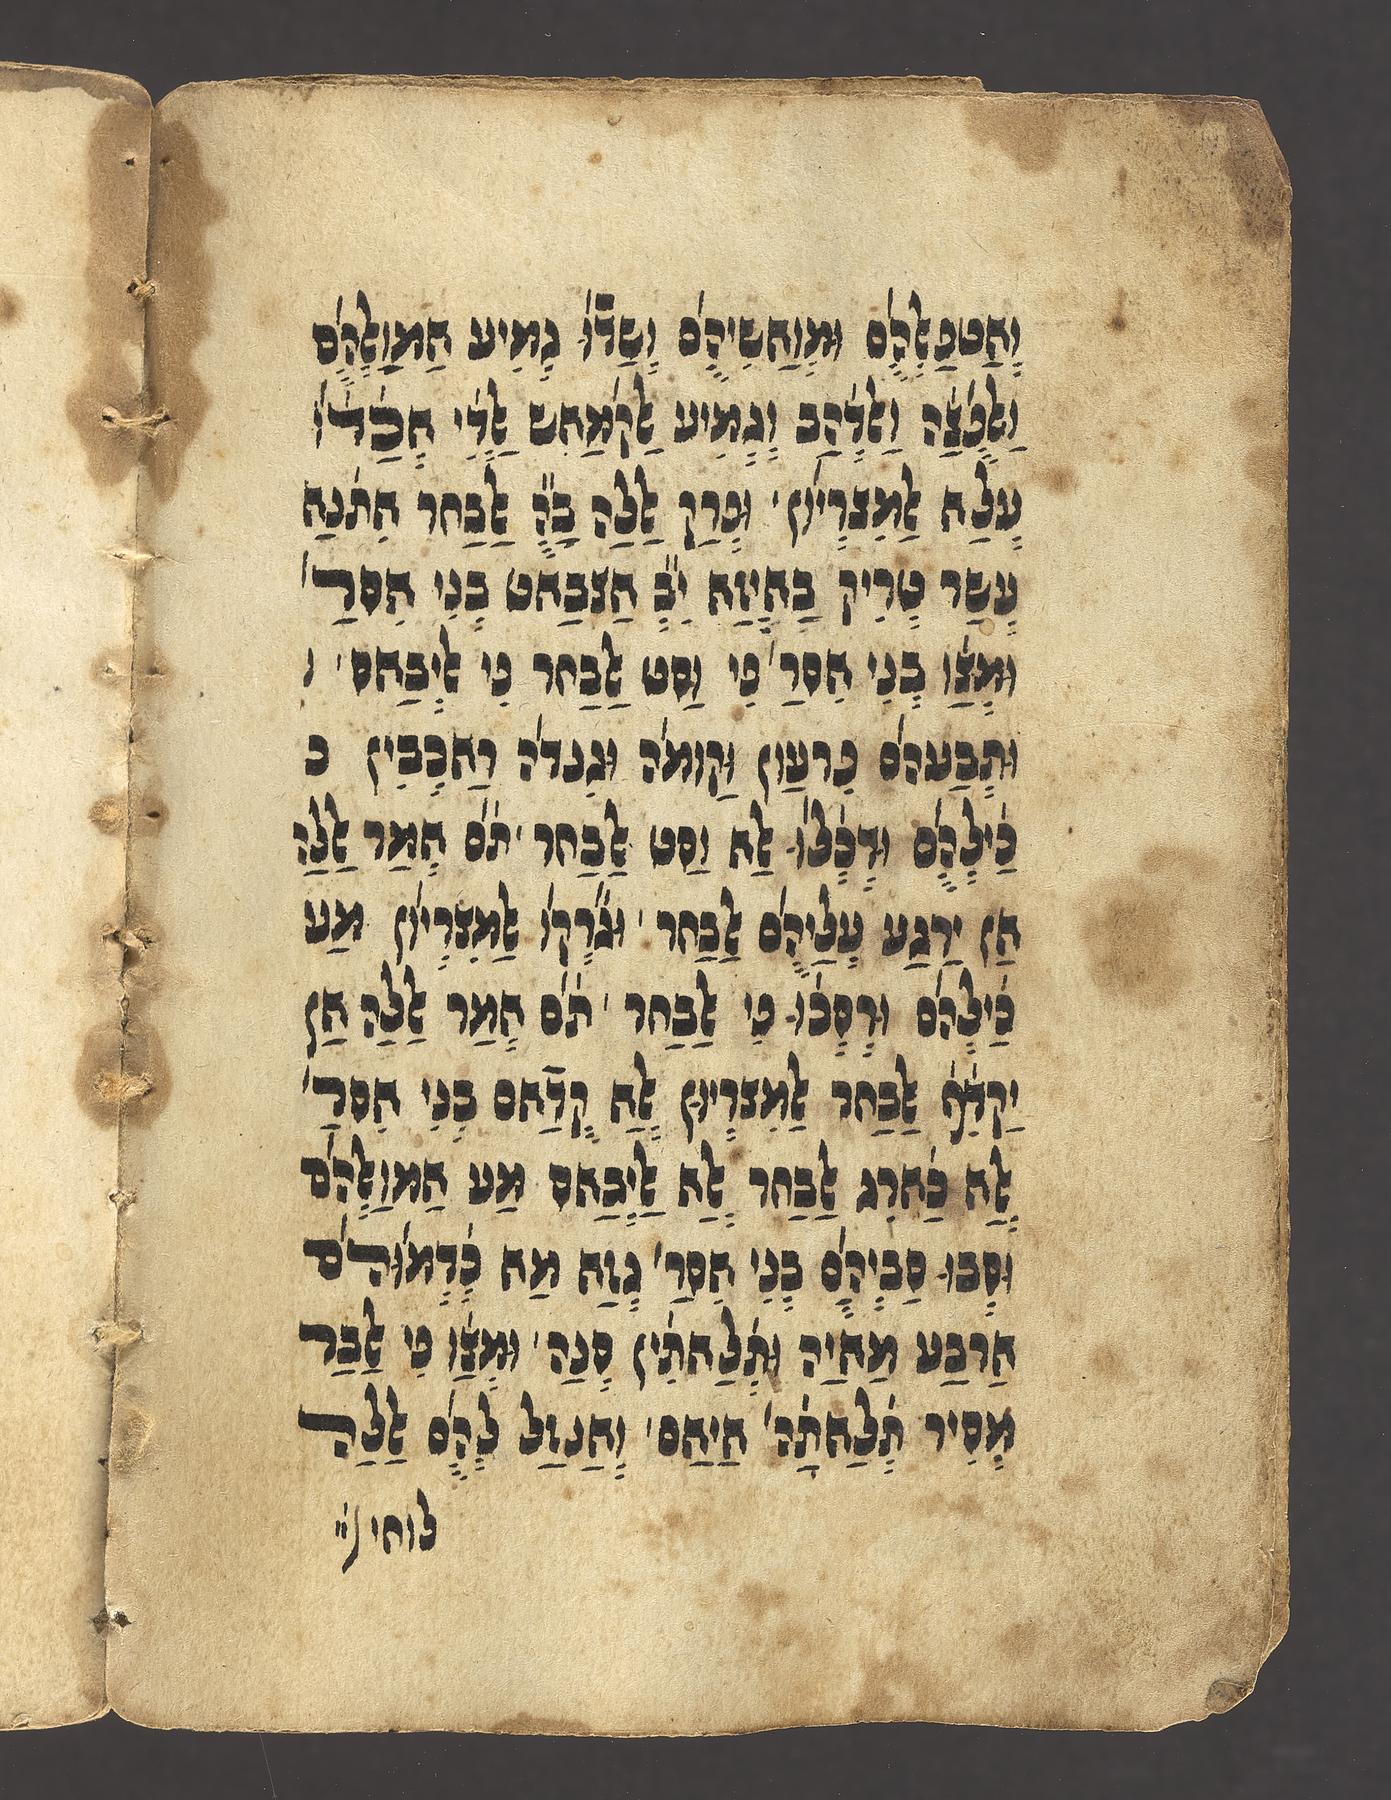 וַאַטפַלְהֻם וּמְוַאשִיהֻם וְשַדּוֹ גְמִיע אַמוַלְהֻם
וַלְפִצַה וַלְדַהַב וְגְמִיע לַקְמַאש לַדִי אְכַדוֹ
עְלַא לַמִצרְיוּן׳ וּפְרַק לַלַה בַּהֲ לַבַחר אִתנַא
עְשַר טְרִיק בַאְיַזַא יִבְ אַצבַאט בְנִי אִסרַ׳
וּמְצַו בְנִי אִסרַ׳ פִי וַסְט לַבַחר פִי לִיְבַאס׳ ו
וּתְבַעהֻם פִרעַון וַקומֻה וּגִנדֻה רַאכְבִין כ
כַילְהֻם וּדְכְלוֹ לַא וַסְט לַבַחר׳ תֻם אְמַר לַלַה
אַן יַרגַע עְלַיהֻם לַבַחר׳ וּגֹרְקוֹ לַמִצרְיוּן מַע
כַילְהֻם וּרְסְכוּ פִי לַבַחר׳ תֻם אְמַר לַלַה אַן
יַקדִף לַבַחר לַמִצרְיוּן לְאַ קֻדַּאם בְנִי אִסרַ׳
לְאַ כַארִג לַבַחר לְאַ לַיְבַאס מַע אַמוַלְהֻם
וּסְבוּ סַבְיְהֻם בְנִי אִסרַ׳ גְזַא מַא כְדְמוּהֻם
אַרבַע מַאְיַה וּתְלַאתִין סְנַה׳ וּמְצַו פִי לַבַר
מְסִיר תְלַאתַה׳ אַיַאם׳ וְאַנזַל לְהֻם לַלַה
לוחין